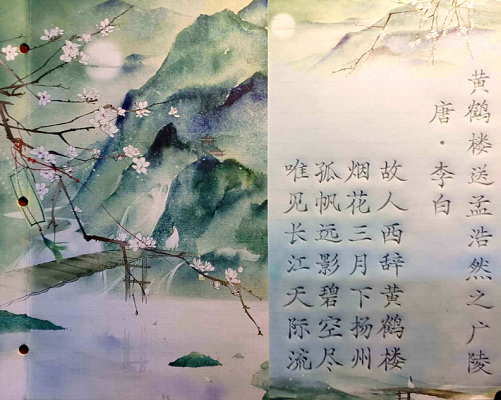 黄鹤楼送孟浩然之广陵
唐·李白
故人西辞黄鹤楼
烟花三月下扬州
孤帆远影碧空尽
唯见长江天际流